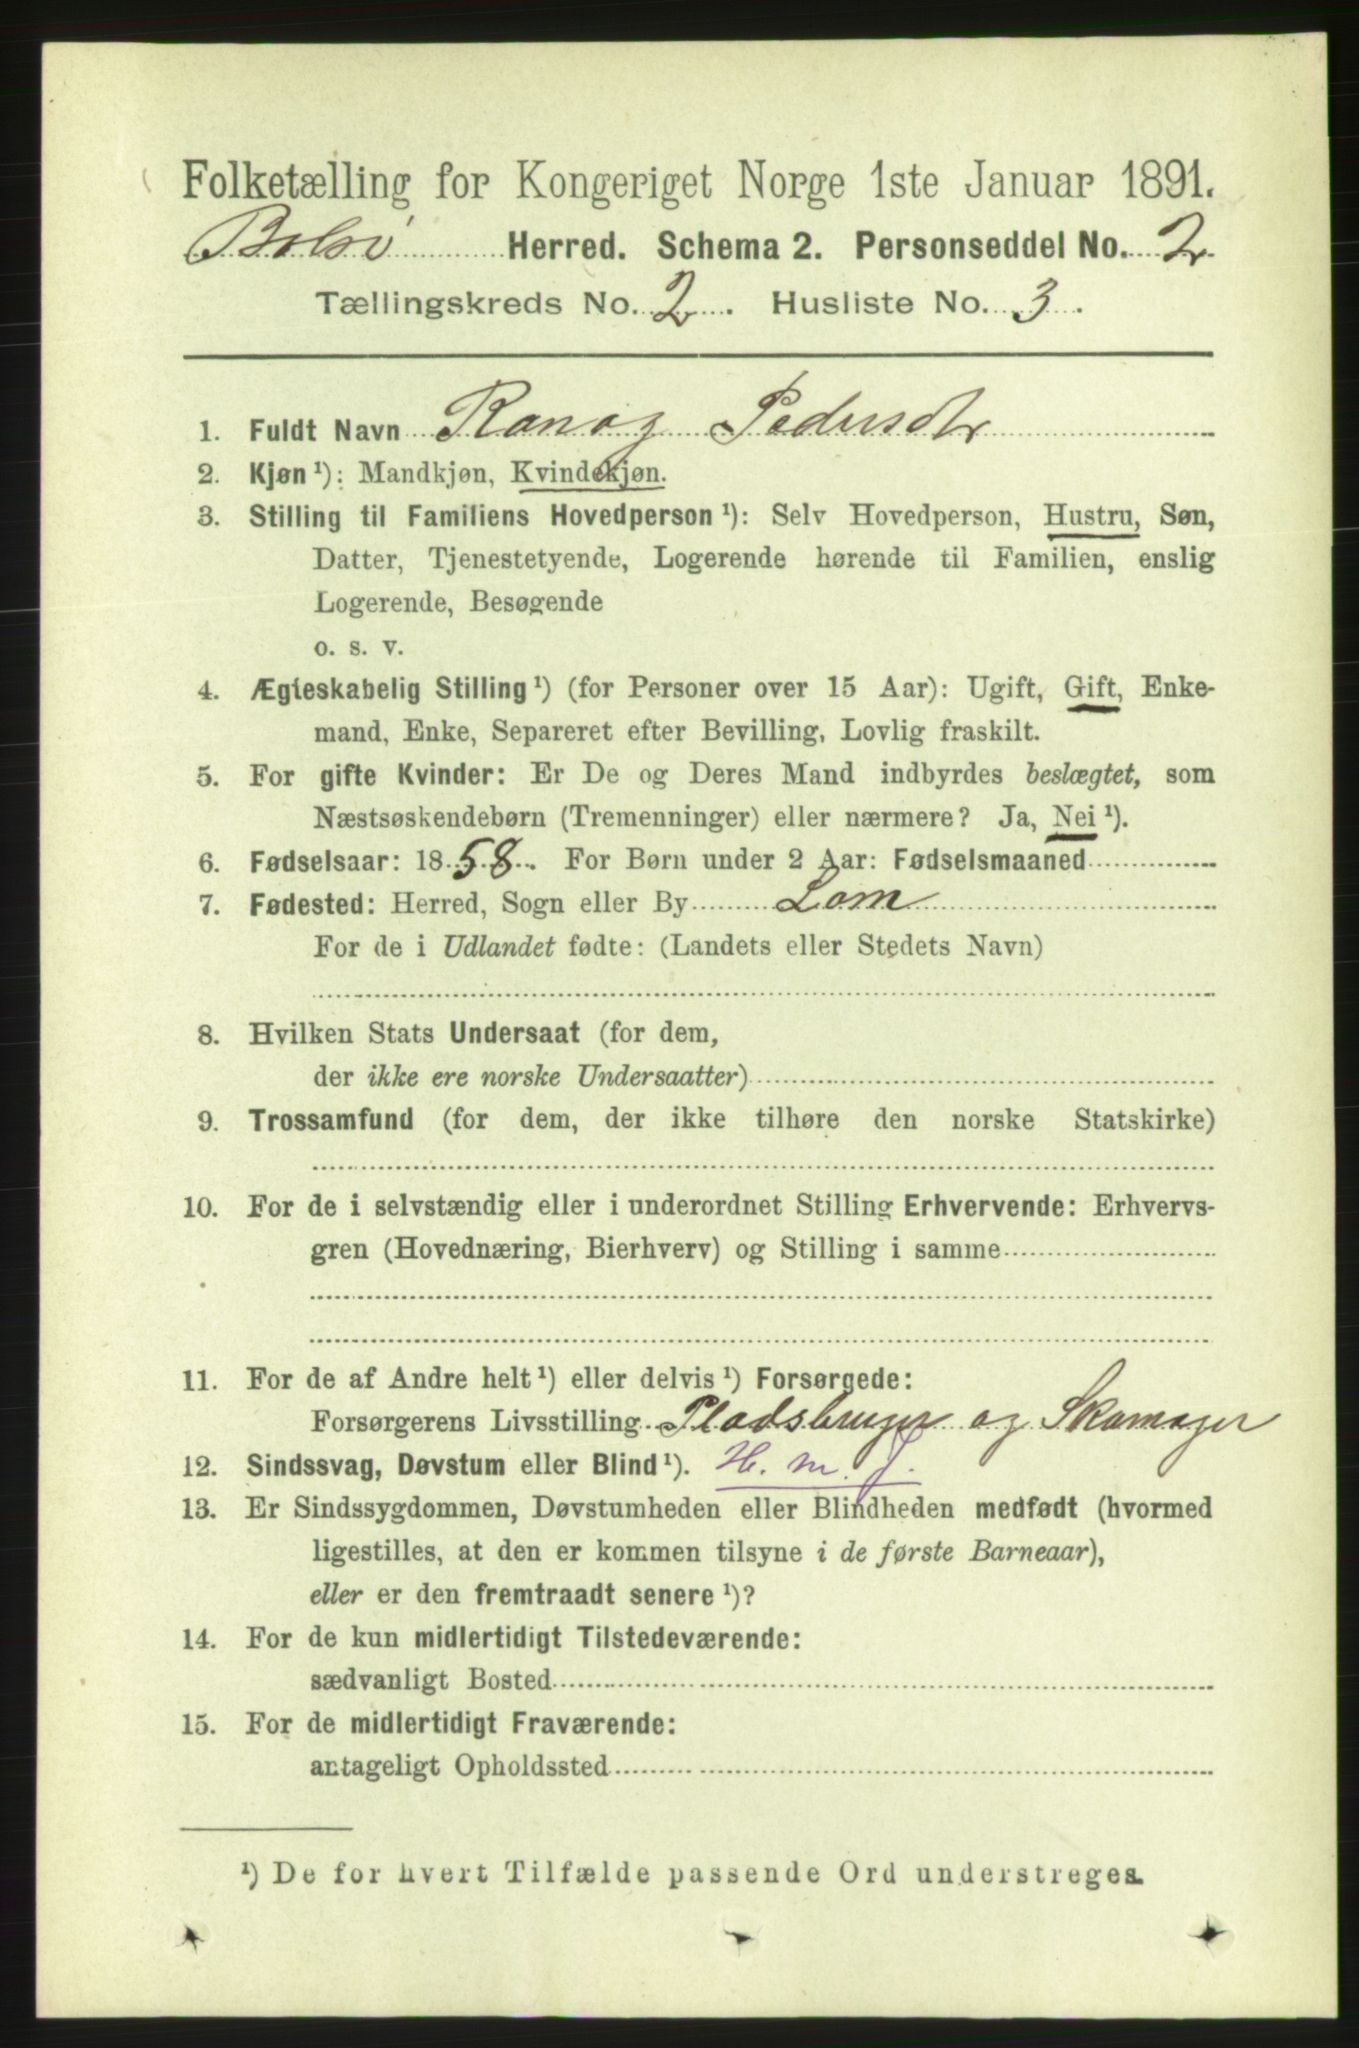 Folketælling for Kongeriget Norge 1ste Januar 1891.
Bolsø Herred. Schema 2. Personseddel No. 2
Tællingskreds No. 2. Husliste No. 3.
1. Fuldt Navn Ranog Pedersdtr
2. Kjøn ¹): Mandkjøn, Kvindekjøn.
3. Stilling til Familiens Hovedperson ¹): Selv Hovedperson, Hustru, Søn,
Datter, Tjenestetyende, Logerende hørende til Familien, enslig
Logerende, Besøgende
o. s. v.
4. Ægteskabelig Stilling ¹) (for Personer over 15 Aar): Ugift, Gift, Enke-
mand, Enke, Separeret efter Bevilling, Lovlig fraskilt.
5. For gifte Kvinder: Er De og Deres Mand indbyrdes beslægtet, som
Næstsøskendebørn (Tremenninger) eller nærmere? Ja, Nei ¹).
6. Fødselsaar: 1858. For Børn under 2 Aar: Fødselsmaaned
7. Fødested: Herred, Sogn eller By Lom
For de i Udlandet fødte: (Landets eller Stedets Navn)
8. Hvilken Stats Undersaat (for dem,
der ikke ere norske Undersaatter)
9. Trossamfund (for dem, der ikke tilhøre den norske Statskirke)
10. For de i selvstændig eller i underordnet Stilling Erhvervende: Erhvervs-
gren (Hovednæring, Bierhverv) og Stilling i samme
11. For de af Andre helt ¹) eller delvis ¹) Forsørgede:
Forsørgerens Livsstilling Pladsbruger og Skomager
12. Sindssvag, Døvstum eller Blind ¹). H. m. J.
13. Er Sindssygdommen, Døvstumheden eller Blindheden medfødt (hvormed
ligestilles, at den er kommen tilsyne i de første Barneaar),
eller er den fremtraadt senere ¹)?
14. For de kun midlertidigt Tilstedeværende:
sædvanligt Bosted
15. For de midlertidigt Fraværende:
antageligt Opholdssted
¹) De for hvert Tilfælde passende Ord understreges.